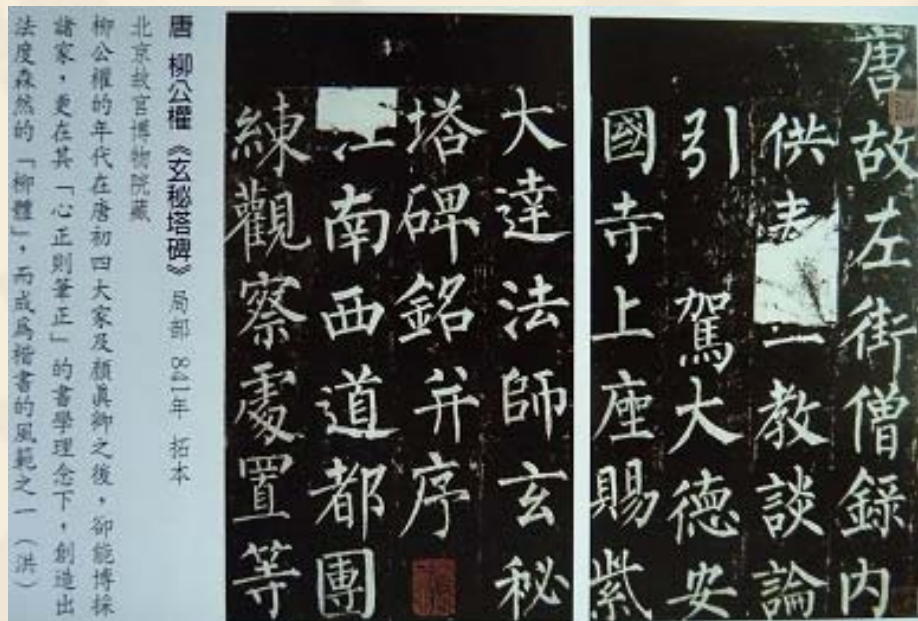 唐故左街僧錄内
供教談論
引 駕大德安
國寺上座賜紫
大達法師玄秘
塔碑銘并序
江南西道都團
練觀察處置等
唐 柳公權《玄秘塔碑》局部 841年 拓本
北京故宮博物院藏
柳公權的年代在唐初四大家及顏真卿之後，卻能博採
諸家，更在其「心正則筆正」的書學理念下，創造出
法度森然的「柳體」，而成爲楷書的風範之一（洪）